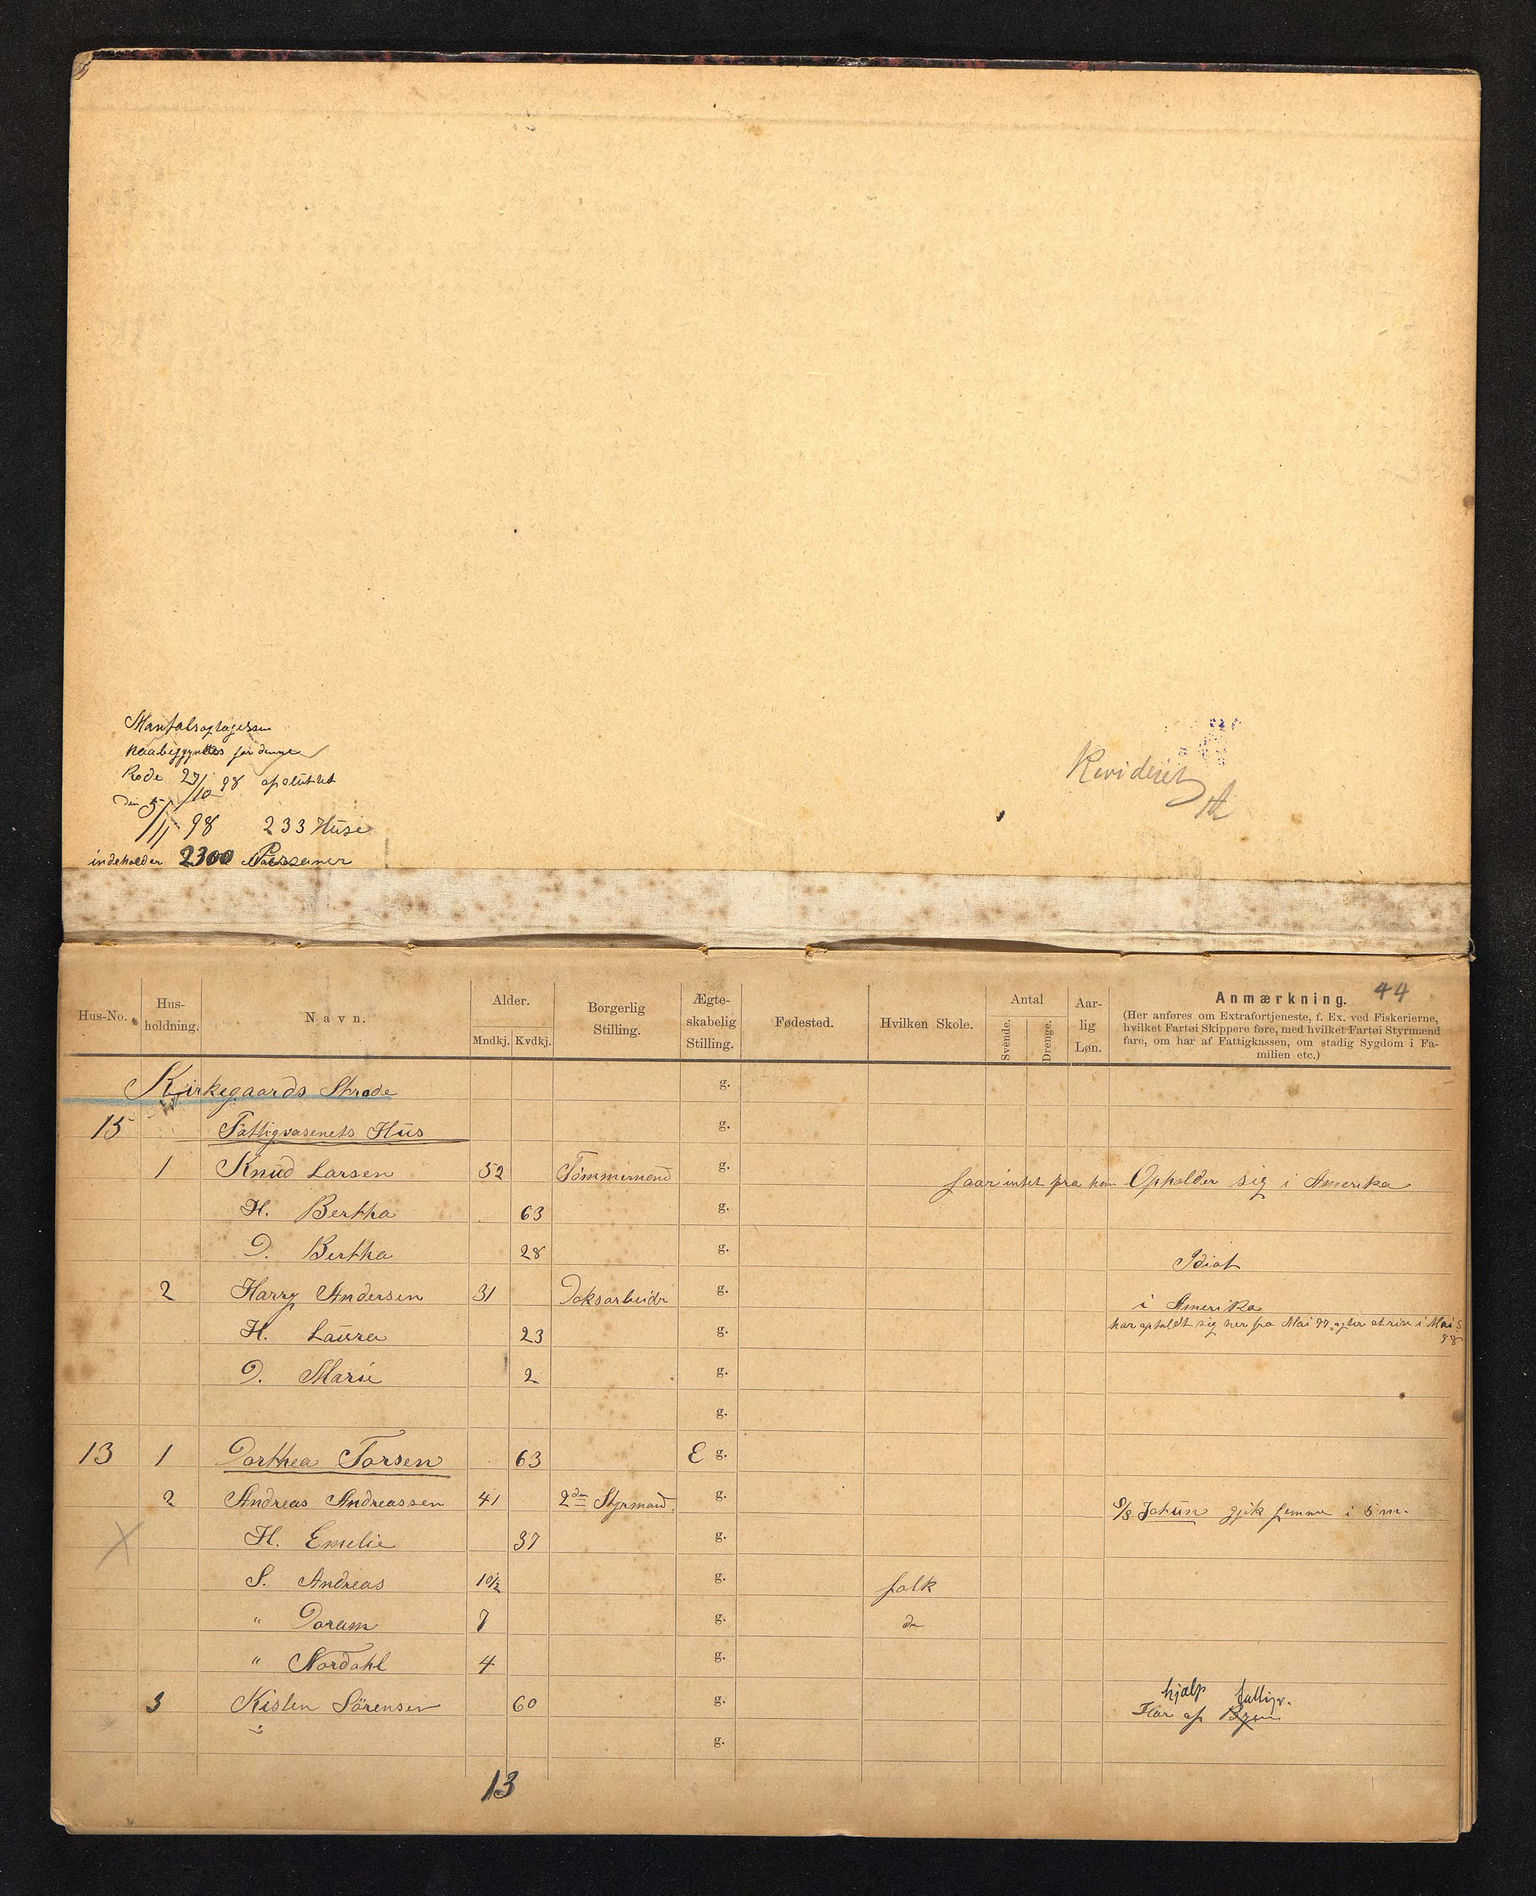 Mantalsoptagelsen
paabegyndtes for denne
Rode 27/10 98 afsluttet
den 5/11 98 233 Huse
indeholder 2300 Personer
Revideret
44
Hus-No. Hus-holdning. Navn. Alder. Mndkj. Kvdkj. Borgerlig Stilling. Ægte-skabelig Stilling. Fødested. Hvilken Skole. Antal Svende. Drenge. Aar-lig Løn. Anmærkning.
(Her anføres om Extrafortjeneste, f. Ex. ved Fiskerierne,
hvilket Fartøi Skippere føre, med hvilket Fartøi Styrmænd
fare, om har af Fattigkassen, om stadig Sygdom i Fa-
milien etc.)
Kirkegaards Strade g.
15 Fattigvæsenets Hus g.
1 Knud Larsen 52 Tømmermand g. faar intet fra ham Opholder sig i Amerika
H. Bertha 63 g.
D. Bertha 28 g. Idiot
2 Harry Andersen 31 Doksarbeider g. i Amerika
H. Laura 23 g. har opholdt sig her fra Mai 97 agter at reise i Mai 98
D. Marie 2 g.
g.
13 1 Dorthea Torsen 63 E g.
2 Andreas Andreassen 41 2den Styrmand. g. S/S Jotun gjik hjemme i 5 m.
H. Emelie 37 g.
S. Andreas 10½ g. folk
" Doram 7 g. do
" Nordahl 4 g.
3 Kisten Sørensen 60 g. Har hjælp af fattigv.
g.
13